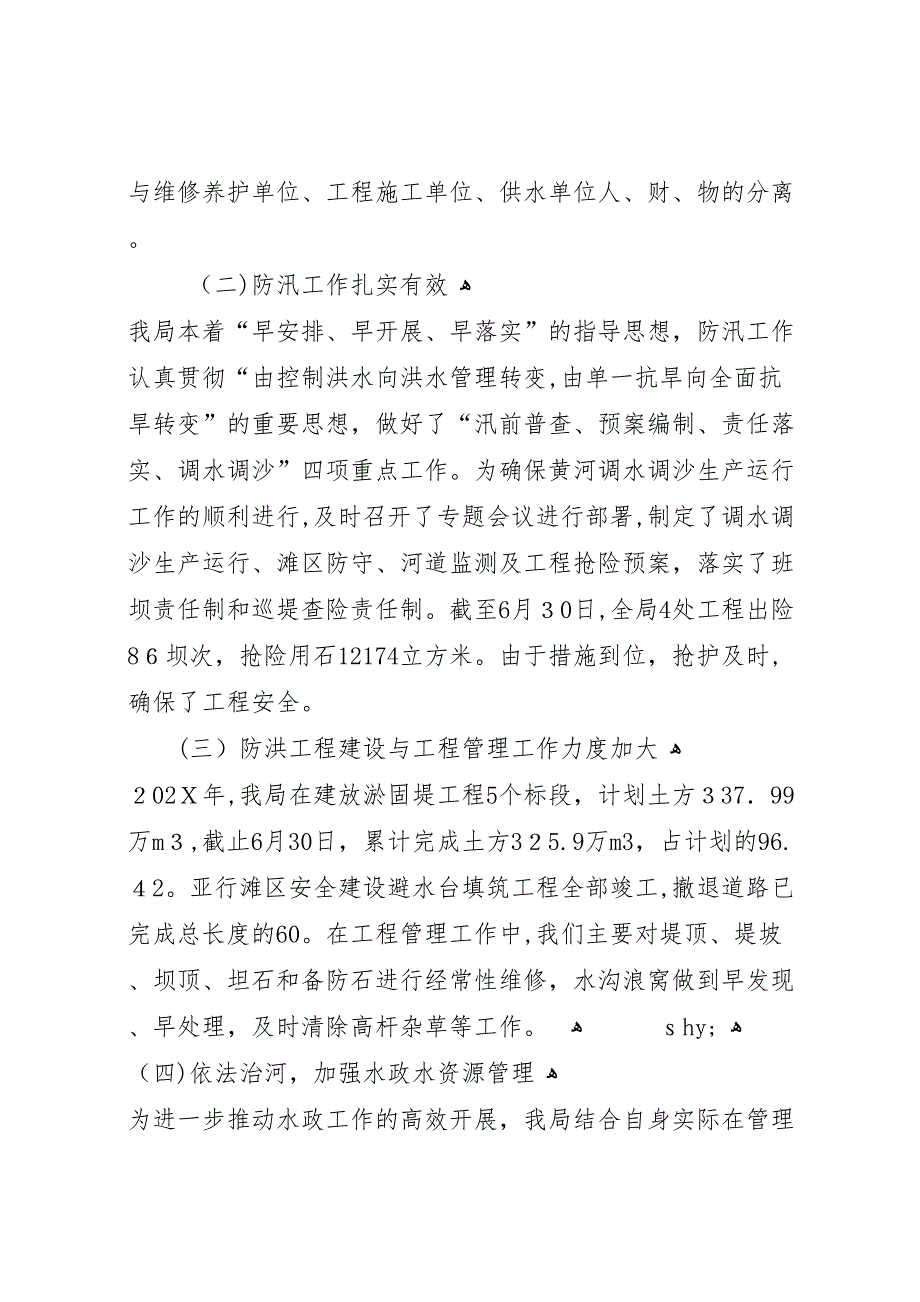 与维修养护单位、工程施工单位、供水单位人、财、物的分离
。
（二)防汛工作扎实有效 ﻫ
我局本着“早安排、早开展、早落实”的指导思想，防汛工作
认真贯彻“由控制洪水向洪水管理转变,由单一抗旱向全面抗
旱转变”的重要思想，做好了“汛前普查、预案编制、责任落
实、调水调沙”四项重点工作。为确保黄河调水调沙生产运行
工作的顺利进行,及时召开了专题会议进行部署,制定了调水调
沙生产运行、滩区防守、河道监测及工程抢险预案，落实了班
坝责任制和巡堤查险责任制。截至6月３0日,全局4处工程出险
8６坝次，抢险用石12174立方米。由于措施到位，抢护及时，
确保了工程安全。
(三）防洪工程建设与工程管理工作力度加大 ﻫ
２02Ｘ年,我局在建放淤固堤工程5个标段，计划土方３37．99
万m３,截止6月30日，累计完成土方3２5.9万m3，占计划的96.
４2。亚行滩区安全建设避水台填筑工程全部竣工,撤退道路已
完成总长度的60。在工程管理工作中,我们主要对堤顶、堤坡
、坝顶、坦石和备防石进行经常性维修，水沟浪窝做到早发现
、早处理，及时清除高杆杂草等工作。 ﻫ shy; ﻫ
（四)依法治河，加强水政水资源管理 ﻫ
为进一步推动水政工作的高效开展，我局结合自身实际在管理